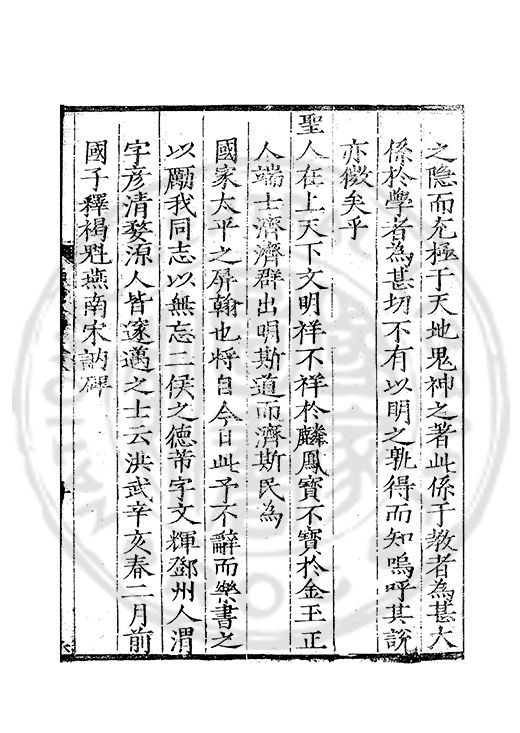 之隐而充極于天地鬼神之著此係于教者為甚大
係於學者為甚切不有以明之孰得而知嗚呼其說
亦微矣乎
聖人在上天下文明祥不祥於麟鳳寳不寳於金玉正
人端士濟濟群出明斯道而濟斯民為
國家太平之屏翰也将自今日此予不辭而樂書之
以勵我同志以無忘二侯之德芾字文輝鄧州人渭
字彦清婺源人皆邃邁之士云洪武辛亥春二月前
國子釋褐魁燕南宋訥碑